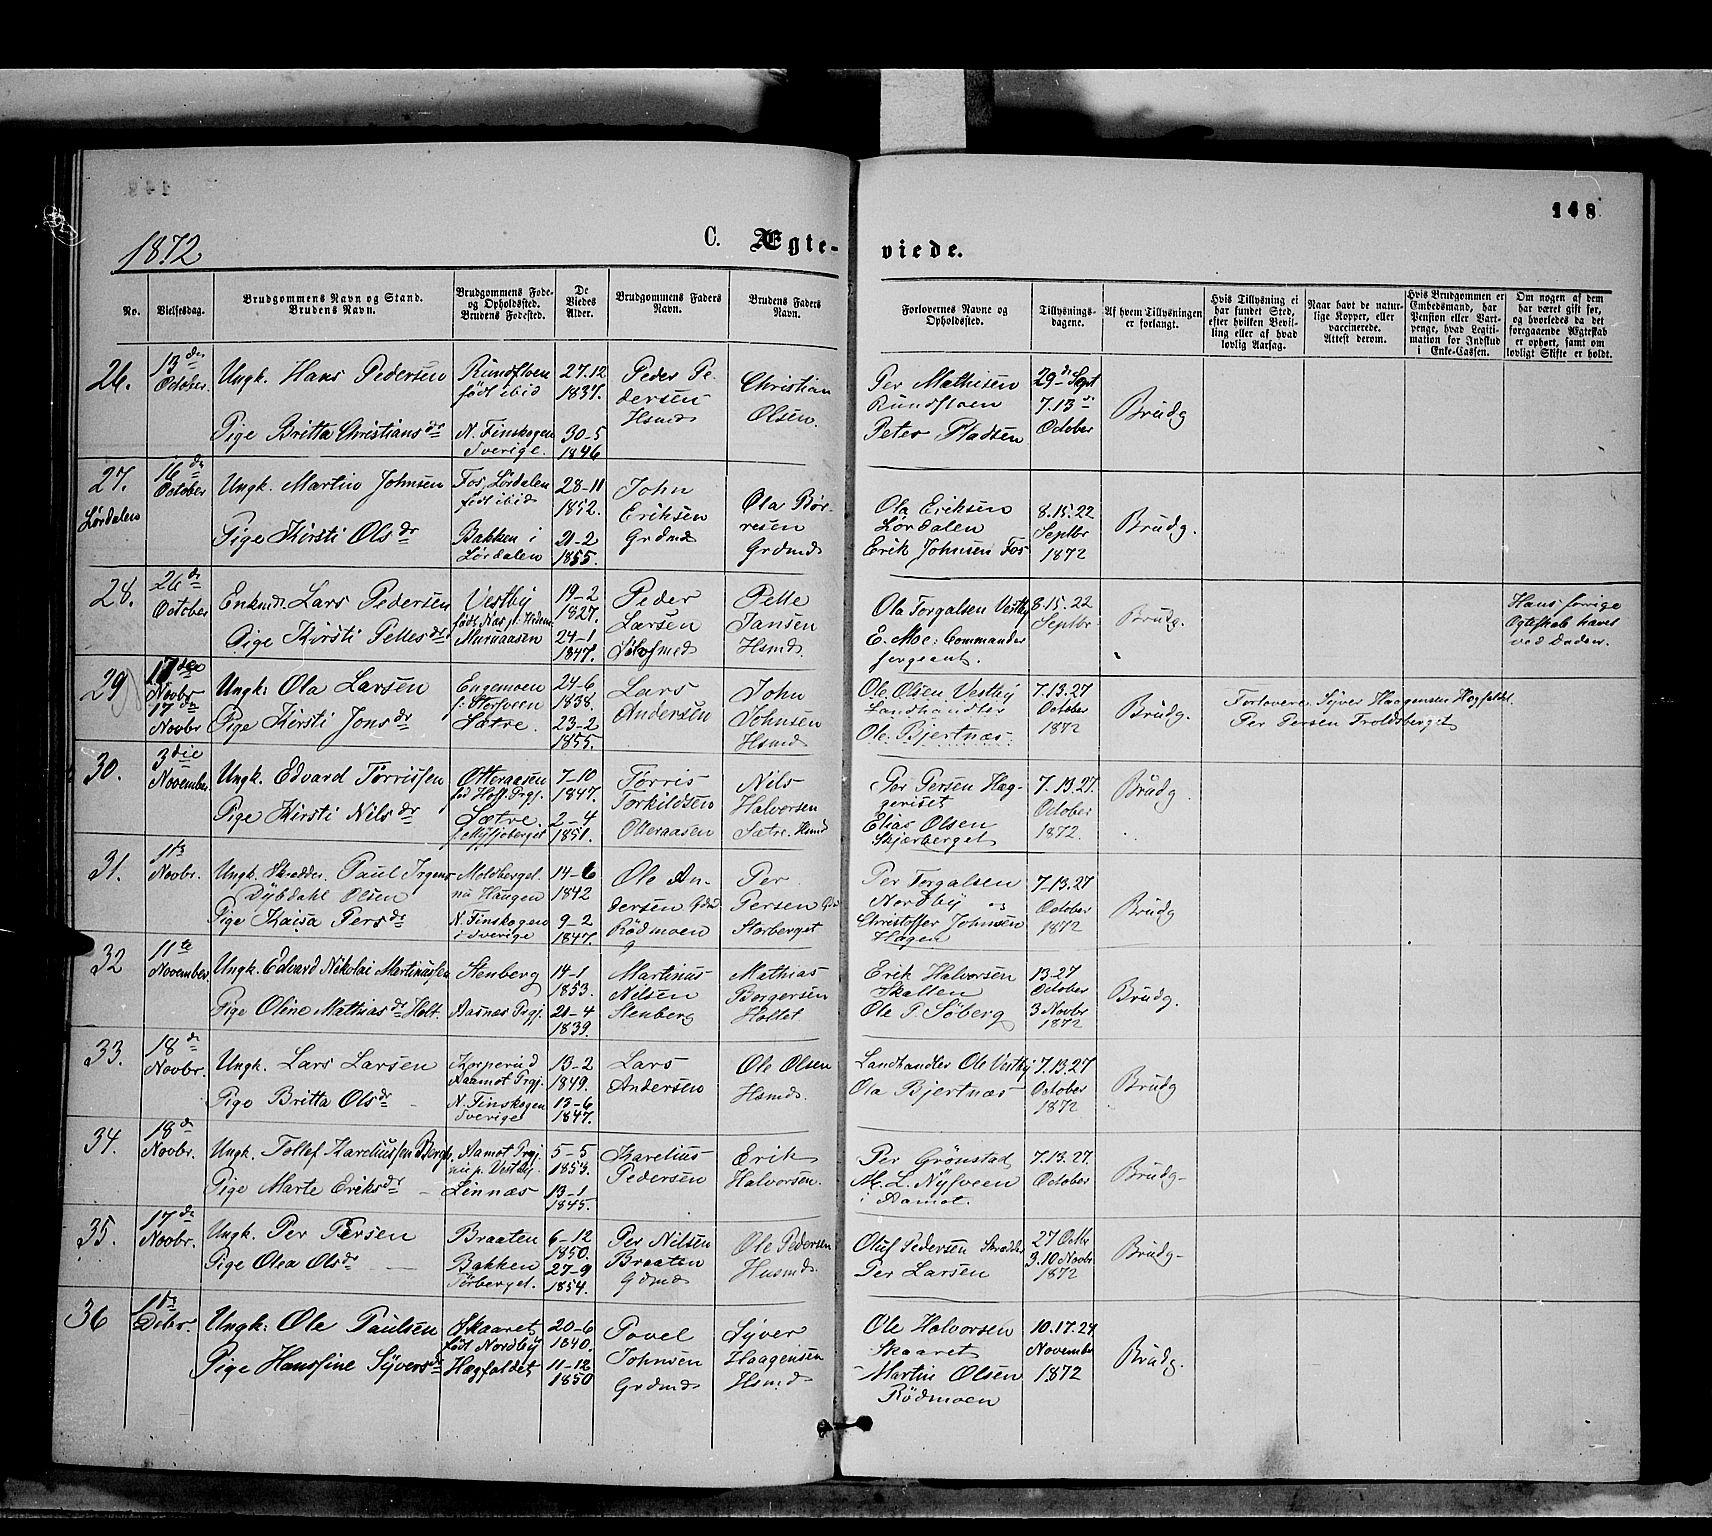 148
1872
C. Ægte-
viede.
No.
Vielsesdag.
Brudgommens Navn og Stand.
Brudens Navn.
Brudgommens Føde-
og Opholdssted.
Brudens Fødested.
De
Viedes
Alder.
Brudgommens Faders
Navn.
Brudens Faders
Navn.
Forlovernes Navne og
Opholdssted.
Tillysnings-
dagene.
Af hvem Tillysningen
er forlangt.
Hvis Tillysning ei
har fundet Sted,
efter hvilken Bevil-
ling eller af hvad
lovlig Aarsag.
Naar havt de natur-
lige Kopper, eller
vaccinerede.
Attest derom.
Hvis Brudgommen er
Embedsmand, har
Pension eller Vart-
penge, hvad Legiti-
mation for Indskud
i Enke-Cassen.
Om nogen af dem
har været gift før,
og hvorledes da det
foregaaende Ægteskab
er ophørt, samt om
lovligt Skifte er holdt.
26.
13de
October.
Ungk. Hans Pedersen
Pige Britta Christiansdr
Rundfloen
født ibid
N. Finskogen
Sverige.
27.12
1837.
30-5
1846
Peder Pe-
dersen
Hsmd
Christian
Olsen.
Per Mathisen
Rundfloen
Peter Pladsen
29d Sept
7.13d
October
Brudg
27.
Lørdalen
16de
October
Ungk. Martin Johnsen
Pige Kirsti Olsdr
Fos, Lørdalen
født ibid
Bakken i
Lørdalen
28-11
1852.
21-2
1855.
John
Eriksen
Grdmd
Ola Bør-
resen
Grdmd
Ola Eriksen
Lørdalen
Erik Johnsen Fos
8.15.22
Septbr
1872
Brudg.
28.
26de
October
Enkmd. Lars Pedersen
Pige Kirsti Pellesdr
Vestby
født Næs p. Hedem.
Muruaasen
19-2
1827.
24-1
1847.
Peder
Larsen
Pelle
Jansen
Hsmd.
Ola Torgalsen Vestby
E. Moe: Commander
sergeant.
8.15.22
Septbr
Brudg.
Hans forrige
Egteskab hævet
ved Døden.
29
17de
Novbr
17de
Novbr
Ungk: Ola Larsen
Pige Kirsti Jonsdr
Engemoen
f: Storsveen
Sætre.
24-6
1838.
23-2
1855.
Lars
Andersen
John
Johnsen
Hsmd
Ole Olsen Vestby
Landhandler
Ole Bjertnæs.
7.13.27
October
1872
Brudg.
Forlovere Syver Haagensen Hægfaldet.
Per Persen Troldsberget
30.
3die
November
Ungk. Edvard Tørrissen
Pige Kirsti Nilsdr
Otteraasen
fød Hoff Prgj.
Sætre.
7-10
1847.
2-4
1851.
Tørris
Torkildsen
Otteraasen
Nils
Halvorsen
Sætre. Hsmd
Per Persen Hæg-
geriset
Elias Olsen
Skjærberget
7.13.27.
October
1872.
Brudg.
31.
11te
Novbr.
Ungk. Skrædder Paul Irgens
Dybdahl Olsen
Pige Kaisa Persdr
Moldberget
nu Haugen
N. Finskogen
i Sverige
14-6
1842
9-2
1847.
Ole An-
dersen Grdmd
Rödmoen
Per
Persen
Storberget
Per Torgalsen
Nordby og
Christoffer Johnsen
Hagen
7-13.27
October
1872
Brudg
32
11te
November
Ungk. Edvard Nikolai Martinussen
Pige Oline Mathiasdr Holt.
Stenberg
Aasnæs Prgj.
14-1
1853.
21-4
1839.
Martinus
Nilsen
Stenberg
Mathias
Borgersen
Holtet
Erik Halvorsen
Skallen
Ole P. Søberg
13-27
October
3 Novbr
1872
Brudg.
33.
18de
Novbr.
Ungk. Lars Larsen
Pige Britta Olsdr
Korperud
Aamot Prgj.
N. Finskogen
Sverige
13-2
1849.
13-6
1847.
Lars
Andersen
Ole Olsen
Hsmd.
Landhandler Ole Vestby
Ola Bjertnæs
7.13.27
October
1872
Brudg
34.
18de
Novbr.
Ungk. Tollef Kareliussen Berg
Pige Marte Eriksdr
Aamot Prgj.
nu p. Vestby.
Linnæs
5-5
1853.
13-1
1845.
Karelius
Pedersen
Erik
Halvorsen.
Per Grønstad
M. L. Nysveen
i Aamot.
7.13.27.
October
Brudg-
35.
17de
Novbr.
Ungk. Per Persen
Pige Olea Olsdr
Braaten
Bakken
Tørberget.
6-12
1850.
27-9
1854.
Per Nilsen
Braaten
Grdmd
Ole Pedersen
Husmd.
Oluf Pedersen Skrædder
Per Larsen
27 Octbr
3.10 Novbr
1872
Brudg-
36
1ste
Debr.
Ungk: Ole Paulsen
Pige Hansine Syversdr
Skaaret
født Nordby
Hægfaldet
20-6
1840.
11-12
1850
Povel
Johnsen
Grdmd
Syver
Haagensen
Hsmd
Ole Halvorsen
Skaaret
Martin Olsen
Rödmoen
10.17.24
November
1872
Brudg.